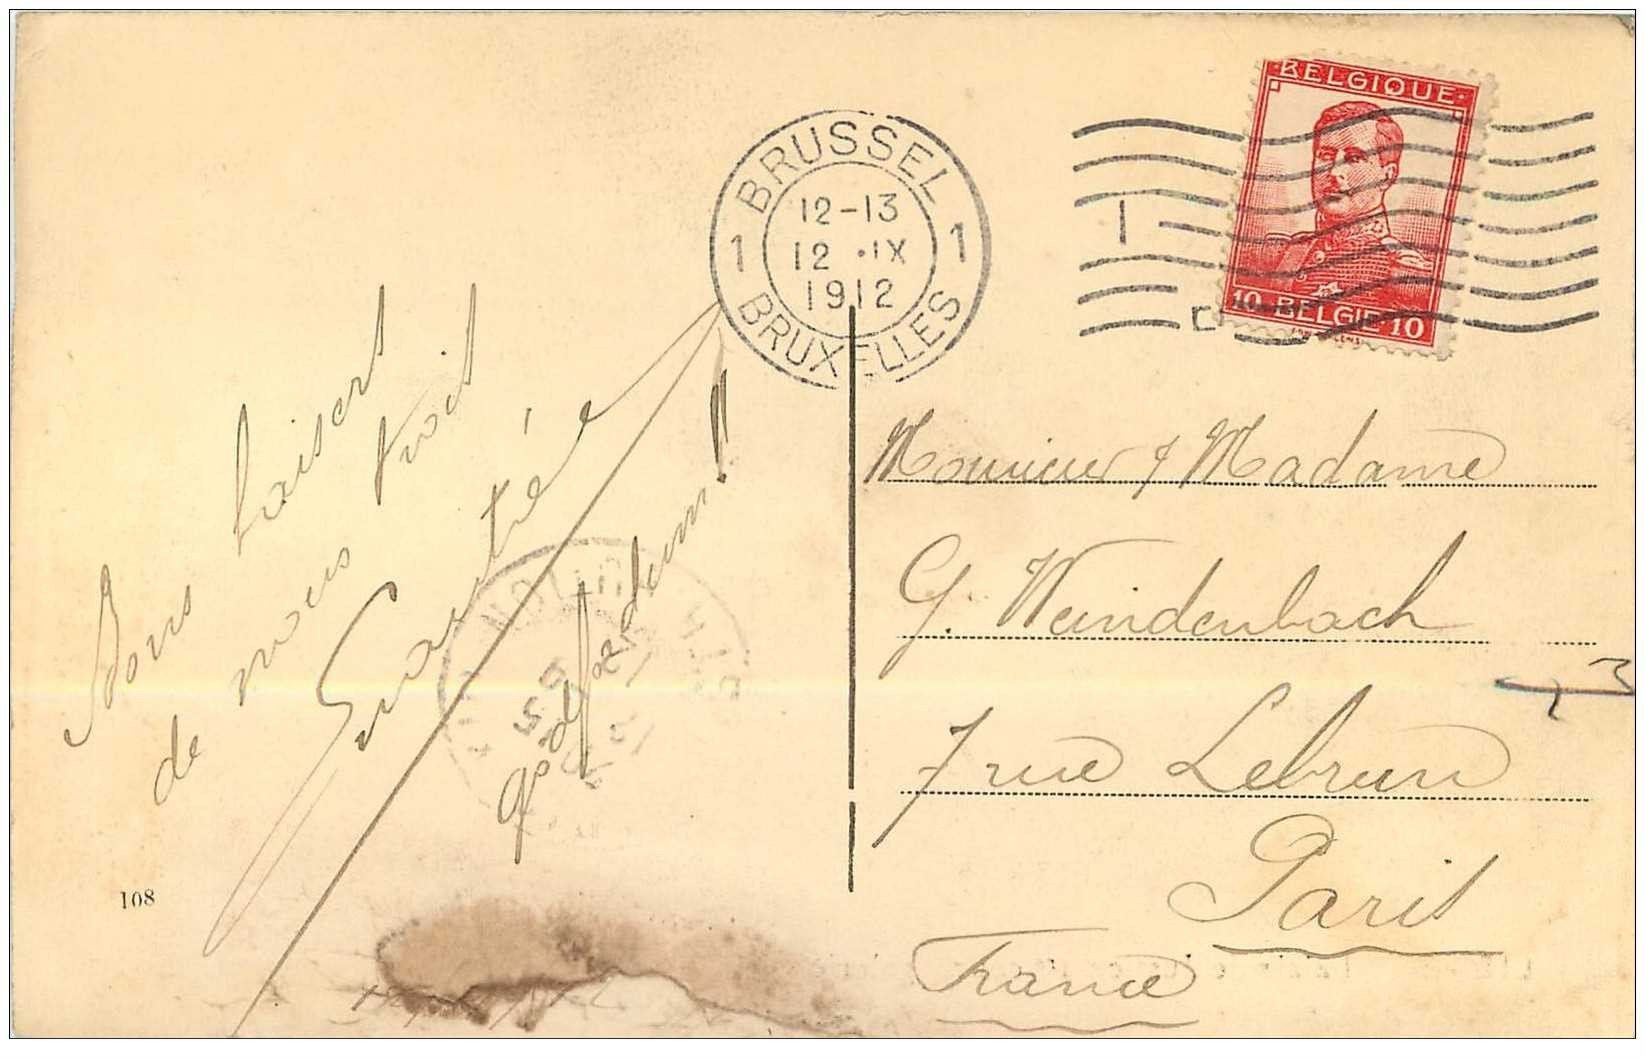 BELGIQUE
10 BELGIE 10
BRUSSEL
12-13
1 12 IX 1
1912
BRUXELLES
1
Bons baisers
de nous trois
Monsieur & Madame
G. Weindenbach
7 rue Lebrun
Paris
France
108